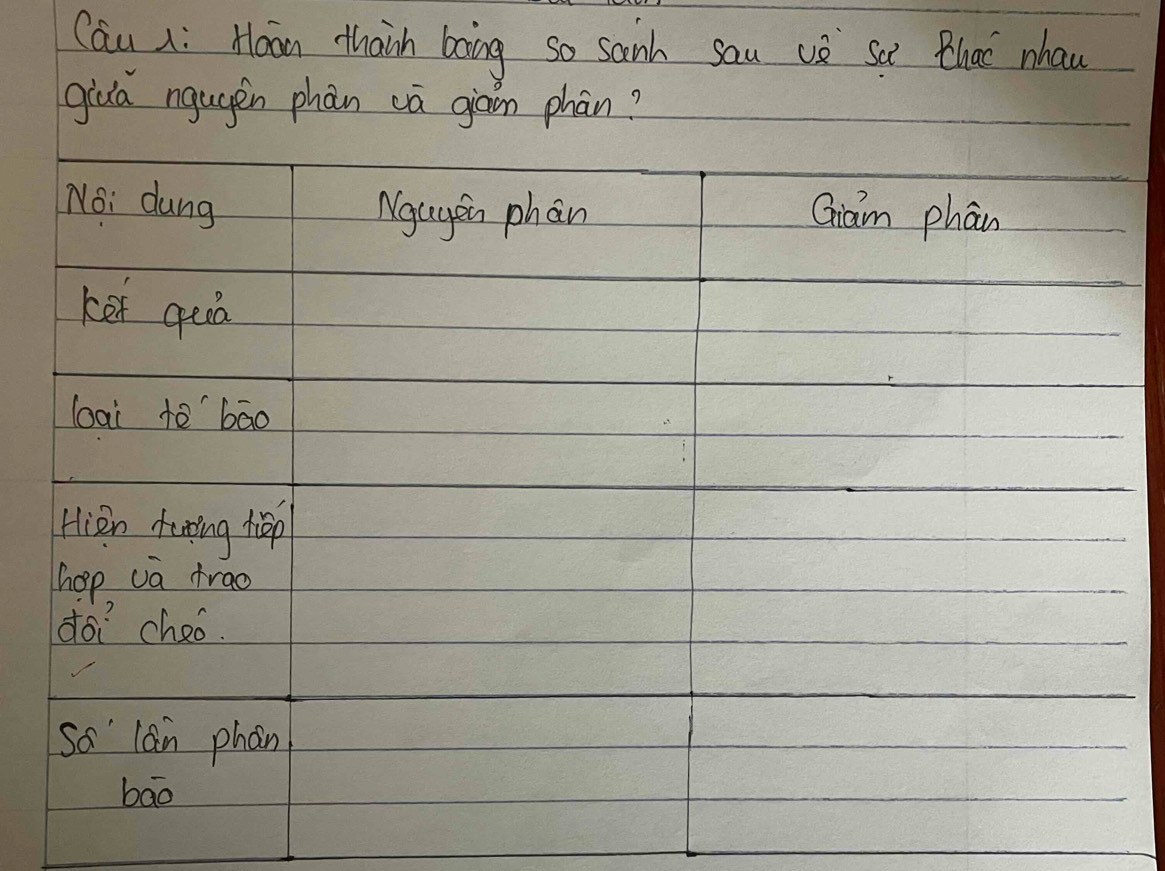 Câu 1: Hoàn thành bảng so sánh sau về sự khác nhau
giữa nguyên phân và giảm phân?
Nội dung Nguyên phân Giảm phân
Kết quả
loại tế bào
Hiện tượng tiếp
hợp và trao
đổi chéo.
Số lần phân
bào